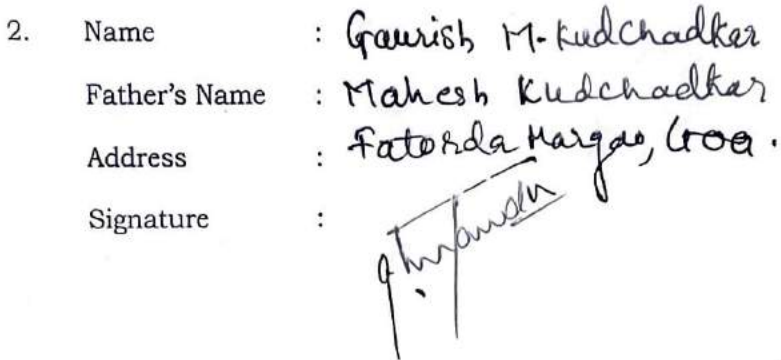 2. Name : Gaurish M. Kudchadkar
Father's Name : Mahesh Kudchadkar
Address : Fatorda Margao, Goa.
Signature :